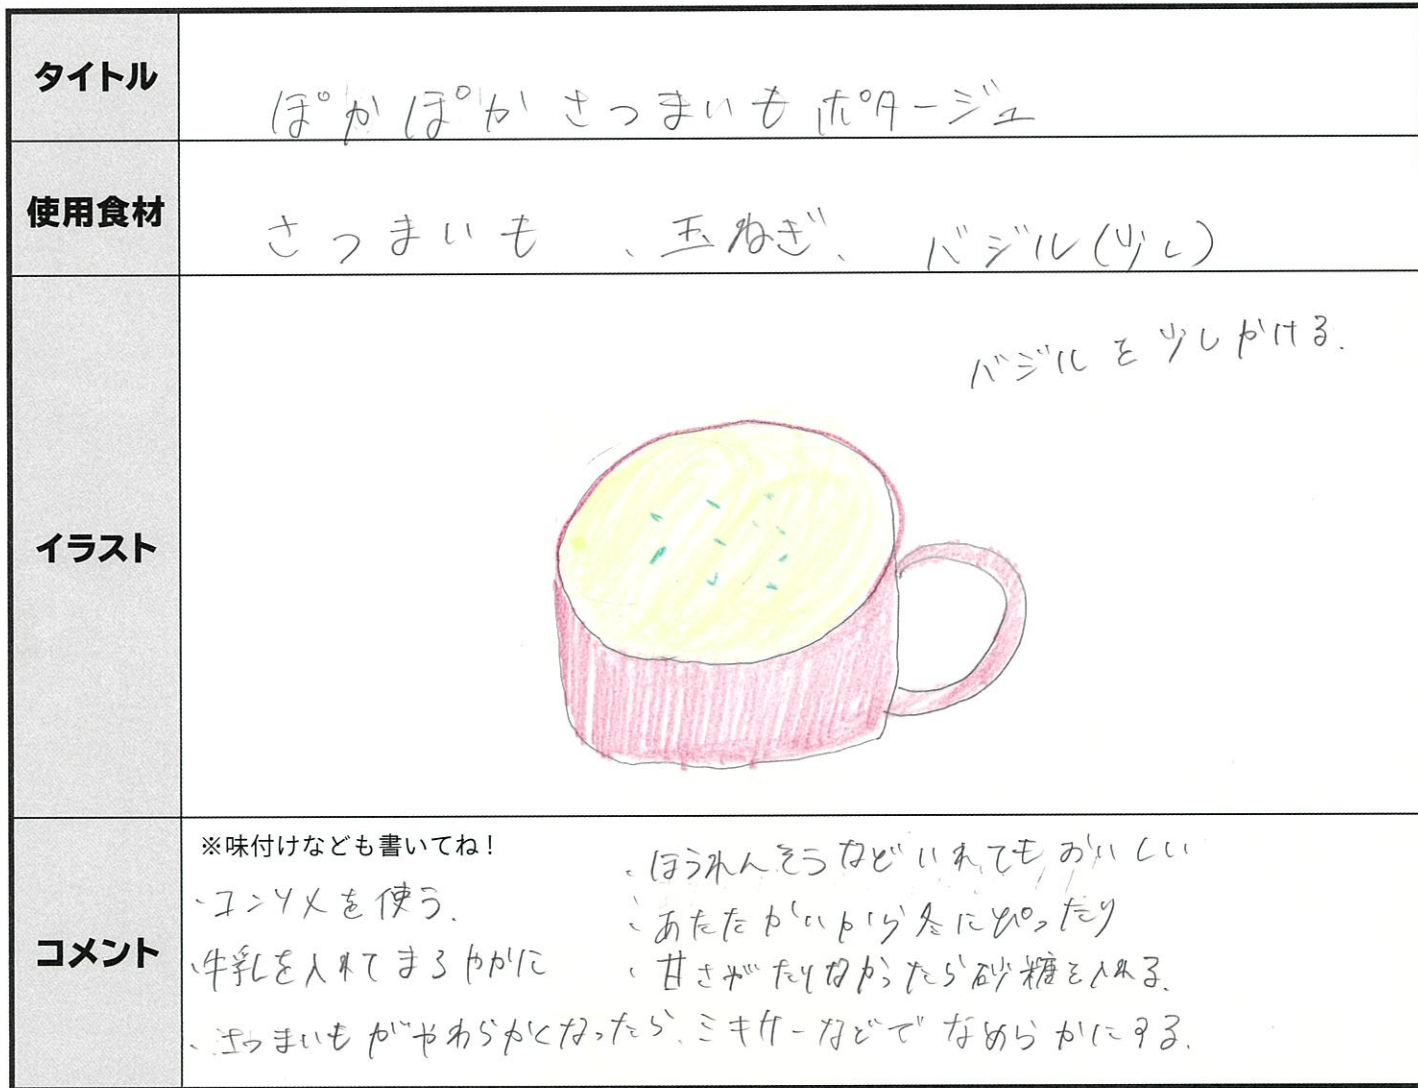 タイトル
ぽかぽかさつまいもポタージュ
使用食材
さつまいも、玉ねぎ、バジル(少し)
イラスト
バジルを少しかける.
コメント
※味付けなども書いてね!
・コンソメを使う.
・牛乳を入れてまろやかに
・ほうれんそうなどいれてもおいしい
・あたたかいから冬にぴったり
・甘さがたりなかったら砂糖を入れる.
・さつまいもがやわらかくなったら、ミキサーなどでなめらかにする.